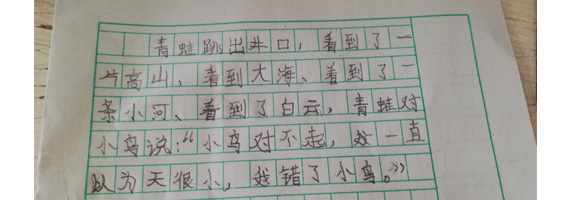 青蛙跳出井口，看到了一
片高山、看到大海、看到了一
条小河、看到了白云，青蛙对
小鸟说：“小鸟对不起，我一直
以为天很小，我错了小鸟。”